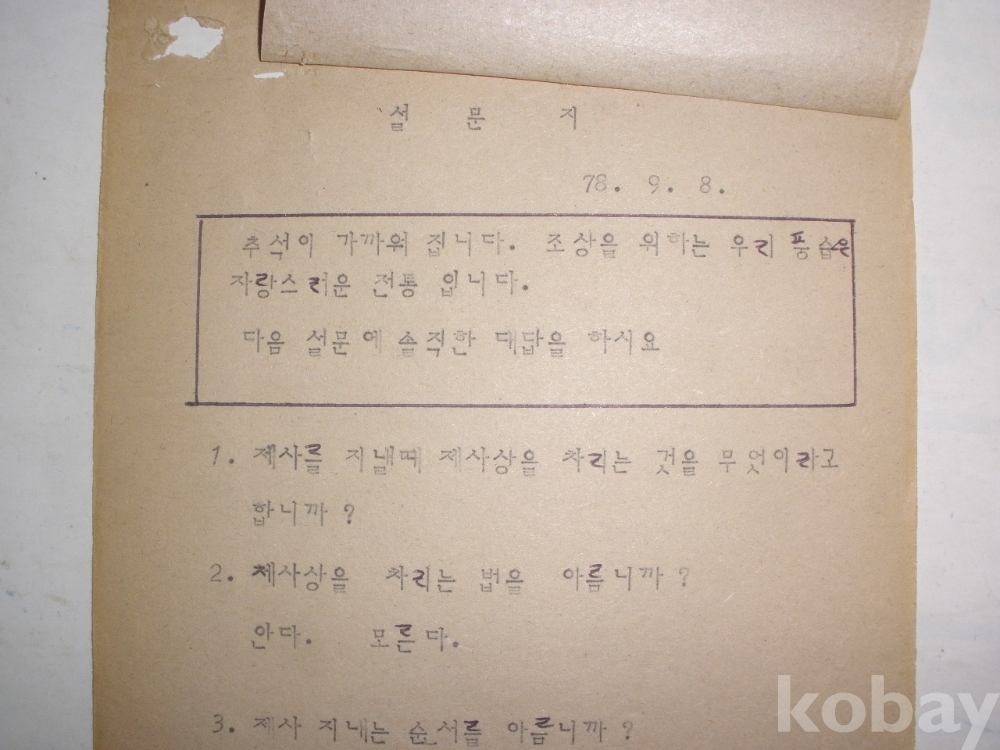 설 문 지
78. 9. 8.
추석이 가까워 집니다. 조상을 위하는 우리 풍습은
자랑스러운 전통 입니다.
다음 설문에 솔직한 대답을 하시요
1. 제사를 지낼때 제사상을 차리는 것을 무엇이라고
합니까 ?
2. 제사상을 차리는 법을 아름니까 ?
안다. 모른다.
3. 제사 지내는 순서를 아름니까 ?
kobay